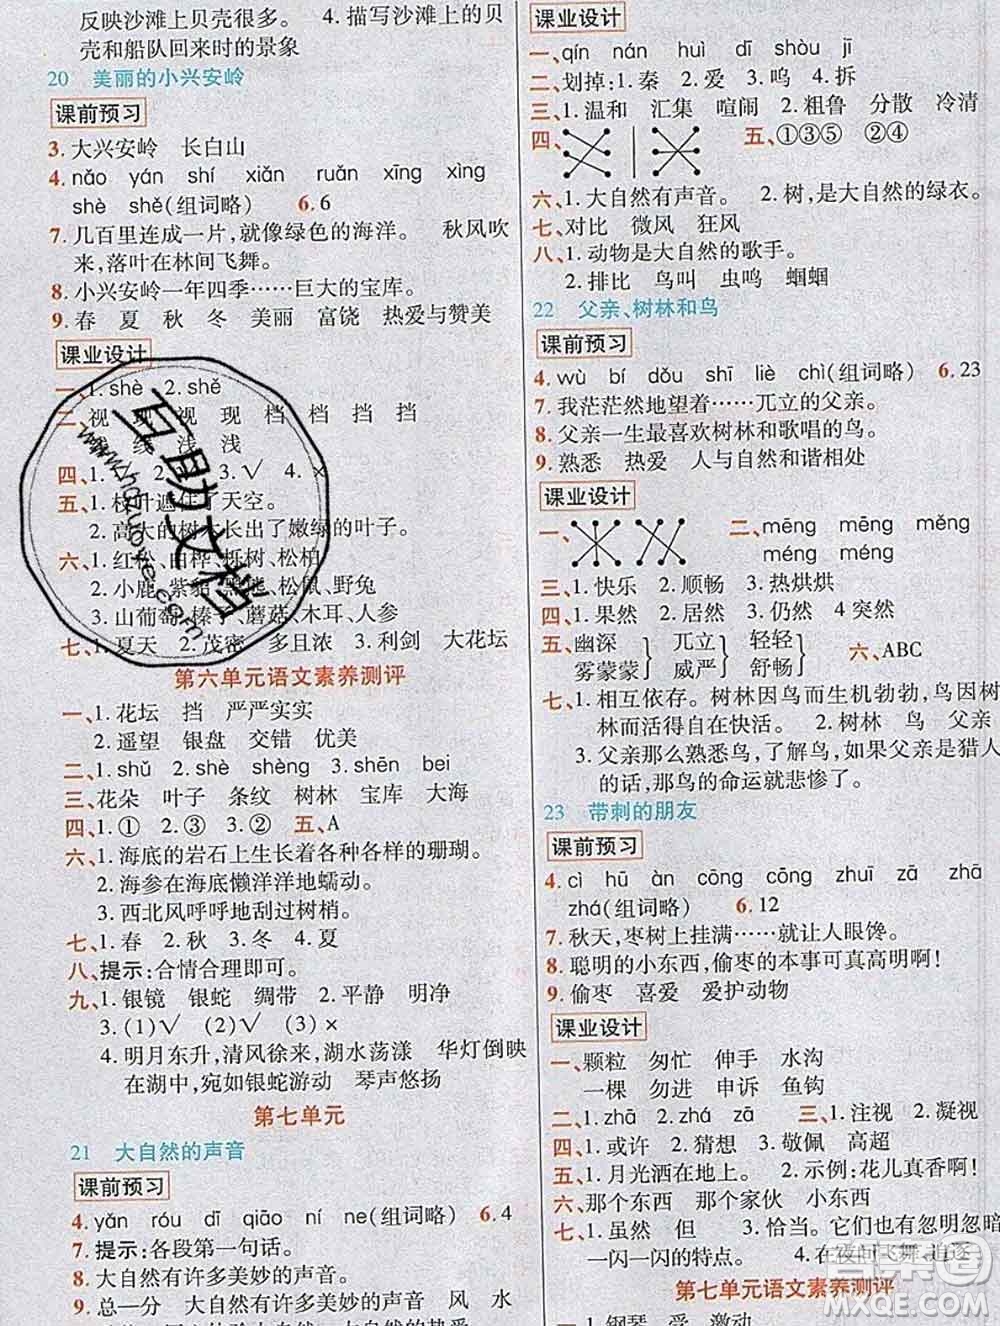 反映沙滩上贝壳很多。 4. 描写沙滩上的贝
壳和船队回来时的景象
20 美丽的小兴安岭
课前预习
3. 大兴安岭 长白山
4. nǎo yán shí xiǎn ruǎn xīng xìng
shè shě(组词略) 6. 6
7. 几百里连成一片,就像绿色的海洋。 秋风吹
来,落叶在林间飞舞。
8. 小兴安岭一年四季……巨大的宝库。
9. 春 夏 秋 冬 美丽 富饶 热爱与赞美
课业设计
一、1. shè 2. shě
二、视 现 视 现 档 挡 挡 挡
线 浅 浅
四、1. 2. 3. √ 4. ×
五、1. 枝叶遮住了天空。
2. 高大的树 长出了嫩绿的叶子。
六、1. 红松、白桦、栎树、松柏
2. 小鹿、紫貂、黑熊、松鼠、野兔
3. 山葡萄、榛子、蘑菇、木耳、人参
七、1. 夏天 2. 茂密 多且浓 3. 利剑 大花坛
第六单元语文素养测评
一、1. 花坛 挡 严严实实
2. 遥望 银盘 交错 优美
二、1. shǔ 2. shè shèng 3. shēn bei
三、花朵 叶子 条纹 树林 宝库 大海
四、1. ① 2. ③ 3. ② 五、A
六、1. 海底的岩石上生长着各种各样的珊瑚。
2. 海参在海底懒洋洋地蠕动。
3. 西北风呼呼地刮过树梢。
七、1. 春 2. 秋 3. 冬 4. 夏
八、提示:合情合理即可。
九、1. 银镜 银蛇 绸带 2. 平静 明净
3. (1)√ (2)√ (3)×
4. 明月东升,清风徐来,湖水荡漾 华灯倒映
在湖中,宛如银蛇游动 琴声悠扬
第七单元
21 大自然的声音
课前预习
4. yǎn róu dī qiāo ní ne(组词略) 6. 4
7. 提示:各段第一句话。
8. 大自然有许多美妙的声音。
9. 总—分 大自然有许多美妙的声音 风 水
课业设计
一、qín nán huì dī shòu jī
二、划掉:1. 秦 2. 爱 3. 呜 4. 拆
三、1. 温和 汇集 喧闹 2. 粗鲁 分散 冷清
四、 五、①③⑤ ②④
六、1. 大自然有声音。 2. 树,是大自然的绿衣。
七、对比 微风 狂风
八、1. 动物是大自然的歌手。
2. 排比 鸟叫 虫鸣 蝈蝈
22 父亲、树林和鸟
课前预习
4. wù bí dǒu shī liè chì(组词略) 6. 23
7. 我茫茫然地望着……兀立的父亲。
8. 父亲一生最喜欢树林和歌唱的鸟。
9. 熟悉 热爱 人与自然和谐相处
课业设计
一、 二、mēng méng měng
méng méng
三、1. 快乐 2. 顺畅 3. 热烘烘
四、1. 果然 2. 居然 3. 仍然 4 突然
五、幽深 兀立 轻轻 六、ABC
雾蒙蒙 威严 舒畅
七、1. 相互依存。树林因鸟而生机勃勃,鸟因树
林而活得自在快活。 2. 树林 鸟 父亲
3. 父亲那么熟悉鸟,了解鸟,如果父亲是猎人
的话,那鸟的命运就悲惨了。
23 带刺的朋友
课前预习
4. cì hū àn cōng cōng zhuī zā zhā
zhá(组词略) 6. 12
7. 秋天,枣树上挂满……就让人眼馋。
8. 聪明的小东西,偷枣的本事可真高明啊!
9. 偷枣 喜爱 爱护动物
课业设计
一、颗粒 匆忙 伸手 水沟
一棵 勿进 申诉 鱼钩
二、1. zhā 2. zhá zā 三、1. 注视 2. 凝视
四、1. 或许 2. 猜想 3. 敬佩 高超
五、1. 月光洒在地上。 2. 示例:花儿真香啊!
六、那个东西 那个家伙 小东西
七、1. 虽然 但 3. 恰当。它们也有忽明忽暗
一闪一闪的特点。 4. 在夜间飞舞、追逐
第七单元语文素养测评
互助文档
www.hazuowe.com
答案圈
MXQE.COM